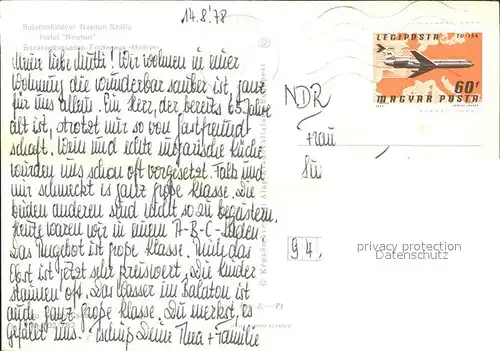 14.8.'78
Balatonföldvár Neptun Szálló
Hotel "Neptun"
Meine liebe Mutti! Wir wohnen in einer
Wohnung die wunderbar sauber ist, ganz
für uns allein. Ein Herr, der bereits 65 Jahre
alt ist, strotzt nur so von Gastfreund
schaft. Wein und echte ungarische Küche
wurden uns schon oft vorgesetzt. Falk und
mir schmeckt es ganz große Klasse. Die
beiden anderen sind nicht so zu begeistern.
Heute waren wir in einem A-B-C-Laden.
Das Angebot ist große Klasse. Auch das
Obst ist jetzt sehr preiswert, die Kinder
staunen oft. Das Wasser im Balaton ist
auch ganz große Klasse. Du merkst, es
gefällt uns. Tschüß Deine + Familie
LÉGIPOSTA TU-154
60f
MAGYAR POSTA
NDR
Frau
94.
privacy protection
Datenschutz